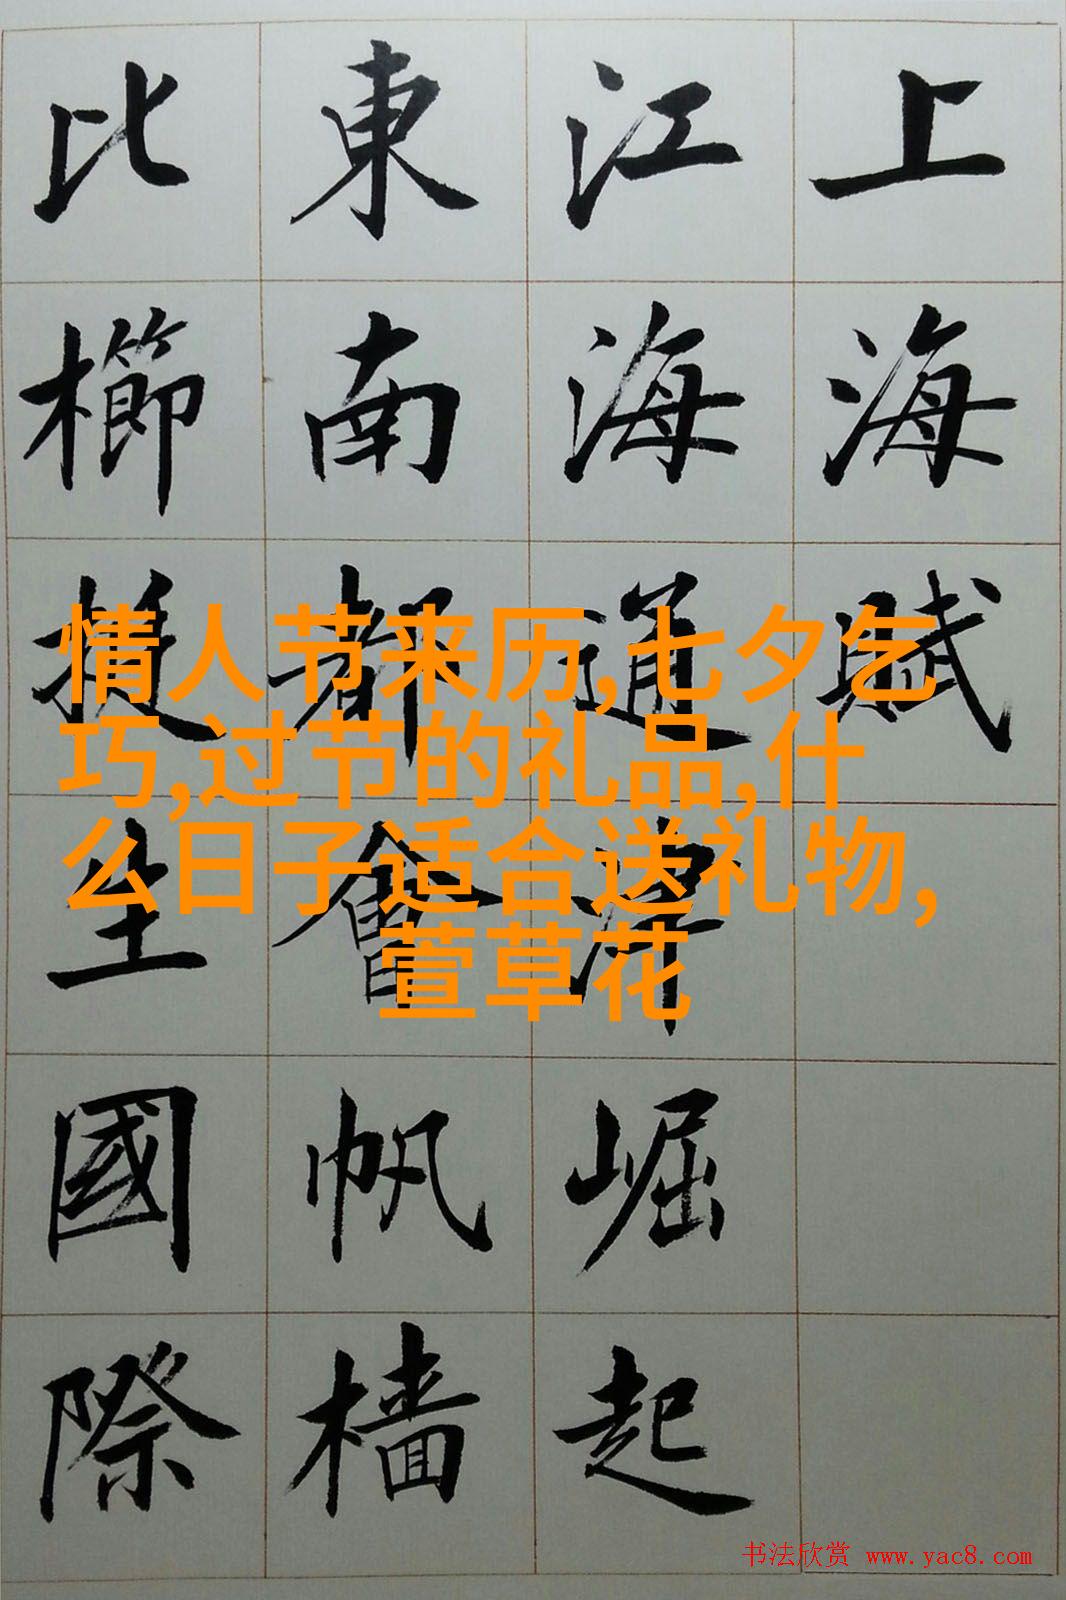 上海賦
江海通津崛起
東南都會帆檣
比櫛挺生國際
情人节来历,七夕乞
巧,过节的礼品,什
么日子适合送礼物,
萱草花
书法欣赏 www.yac8.com